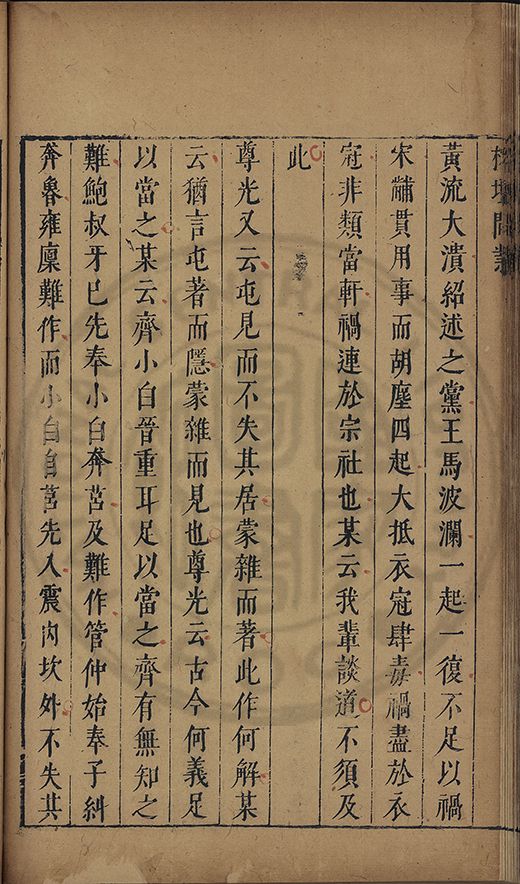 黃流大潰紹述之黨王馬波瀾一起一復不足以禍
宋黼貫用事而胡塵四起大抵衣冠肆毒禍盡於衣
冠非類當軒禍連於宗社也某云我輩談道不須及
此
尊光又云屯見而不失其居蒙雜而著此作何解某
云猶言屯著而隱蒙雜而見也尊光云古今何義足
以當之某云齊小白晉重耳足以當之齊有無知之
難鮑叔牙已先奉小白奔莒及難作管仲始奉子糾
奔魯雍廩難作而小白自莒先入震內坎外不失其